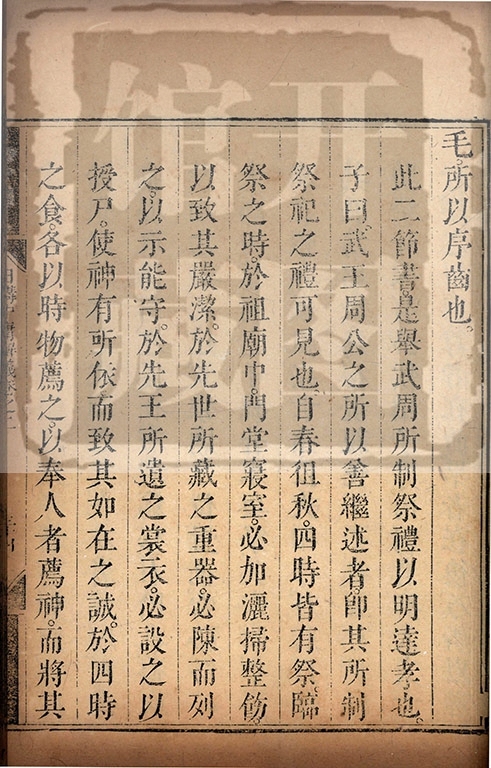 毛。所以序齒也。
此二節書。是舉武周所制祭禮以明達孝也。
子曰。武王周公之所以善繼述者。卽其所制
祭祀之禮可見也。自春徂秋。四時皆有祭。臨
祭之時。於祖廟中門堂寢室。必加灑掃整飭。
以致其嚴潔。於先世所藏之重器。必陳而列
之。以示能守。於先王所遺之裳衣。必設之以
授尸。使神有所依而致其如在之誠。於四時
之食。各以時物薦之。以奉人者薦神。而將其